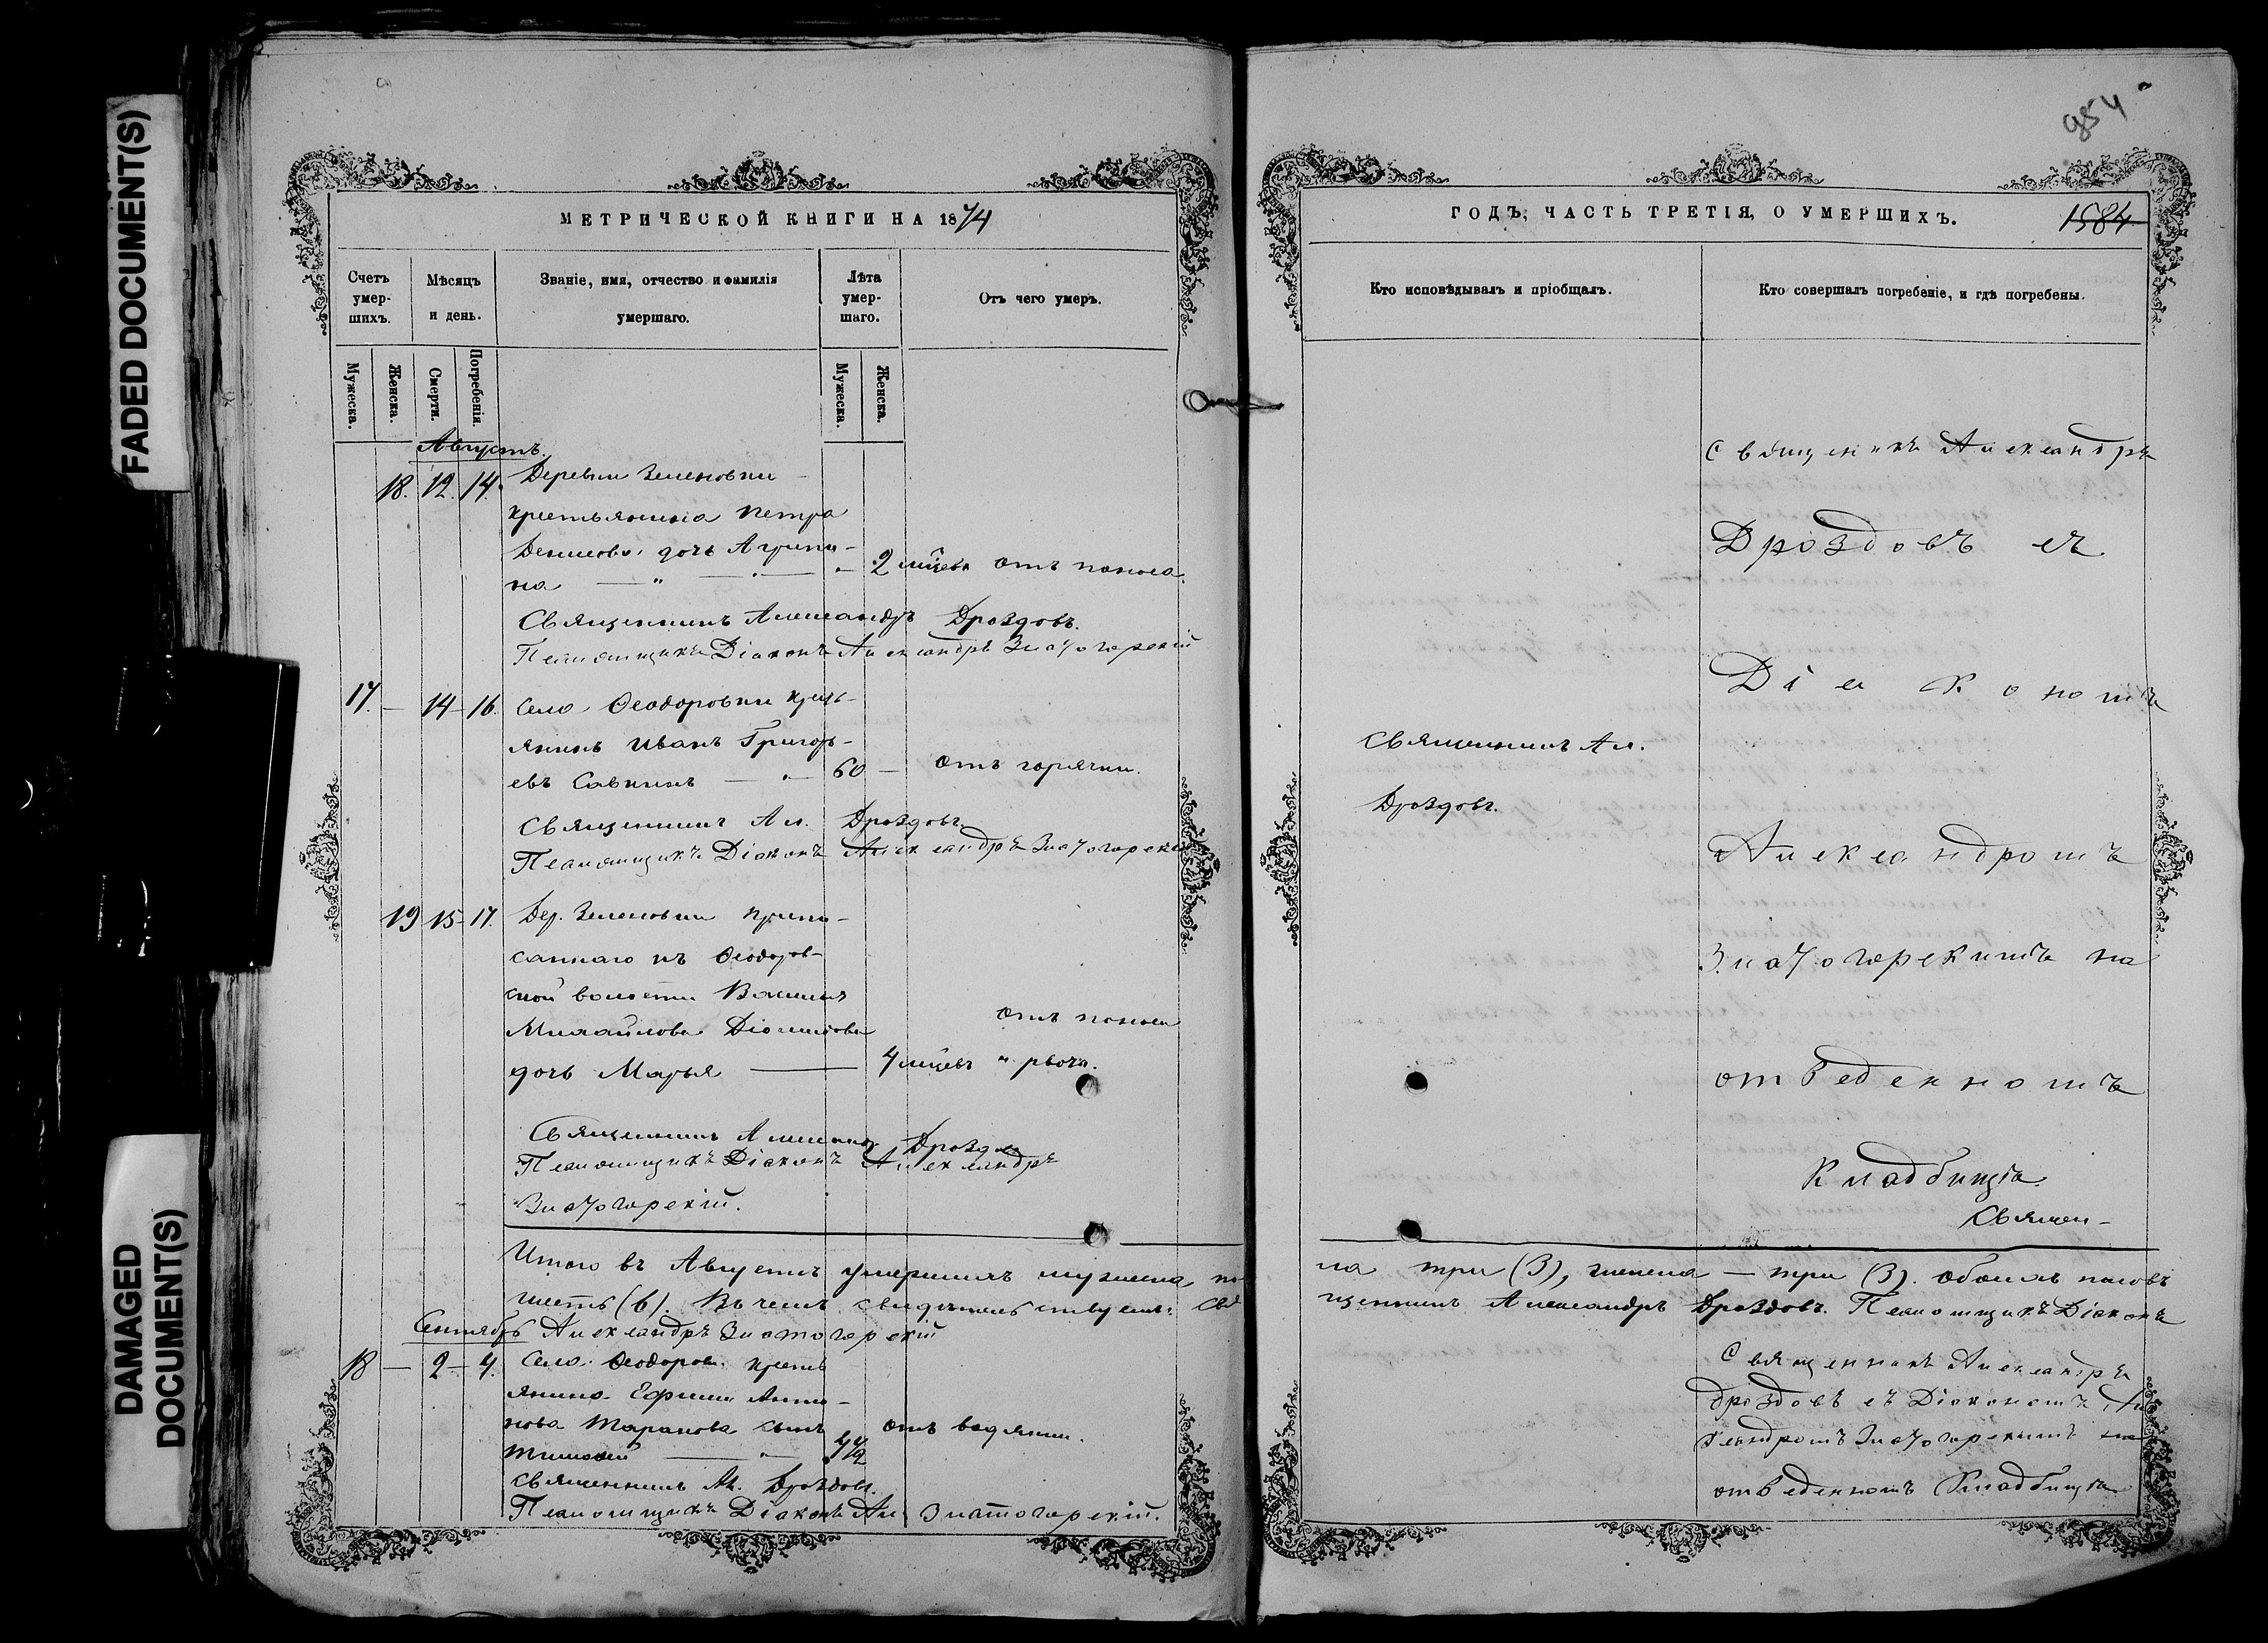 FADED DOCUMENT(S)
DAMAGED
DOCUMENT(S)
МЕТРИЧЕСКОЙ КНИГИ НА 1874
Счетъ умер-шихъ.
Мѣсяцъ и день.
Званіе, имя, отчество и фамилія умершаго.
Лѣта умер-шаго.
Отъ чего умеръ.
Мужеска.
Женска.
Смерти.
Погребенія.
Мужеска.
Женска.
Августъ.
18. 12. 14. Деревни Зеленовки
крестьянина Петра
Денисова дочь Агрипи-
на — " — 2 мѣсев отъ поноса.
Священникъ Александръ Дроздовъ.
Псаломщикъ Діаконъ Александръ Златогорскій
17. — 14 — 16. Село Ѳеодоровки крест-
янинъ Иванъ Григорь-
евъ Савкинъ — " — 60 — отъ горячки.
Священникъ Ал. Дроздовъ.
Псаломщикъ Діаконъ Александръ Златогорскій
19 15 — 17. Дер. Зеленовки припи-
саннаго къ Ѳеодоров-
ской волости Василія
Михайлова дочь Марья — 4 мѣсев отъ поноса и рвоты.
Священникъ Александръ Дроздовъ
Псаломщикъ Діаконъ Александръ
Златогорскій.
Итого въ Августѣ умершихъ мужеска по-
шесть (6). Въ чемъ свидѣтельствуемъ: Свя
Сентябрь Александръ Златогорскій
18 — 2 — 4. Село Ѳеодоров. крест
янина Ефима Анти-
нова Таранова сынъ отъ водянки.
Тимофей — " —
Священникъ Ал. Дроздовъ.
Псаломщикъ Діаконъ Ал. Златогорскій.
954
ГОДЪ, ЧАСТЬ ТРЕТІЯ, О УМЕРШИХЪ.
1584
Кто исповѣдывалъ и пріобщалъ.
Кто совершалъ погребеніе, и гдѣ погребены.
Священникъ Александръ
Дроздовъ съ
Діакономъ
Священникъ Ал.
Дроздовъ.
Александромъ
Златогорскимъ на
отведенномъ
Кладбищѣ.
Священ-
ла три (3), женска — три (3). Обоихъ половъ
щенникъ Александръ Дроздовъ. Псаломщикъ Діаконъ
Священникъ Александръ
Дроздовъ съ Діакономъ Ал
ександромъ Златогорскимъ на
отведенномъ Кладбищѣ